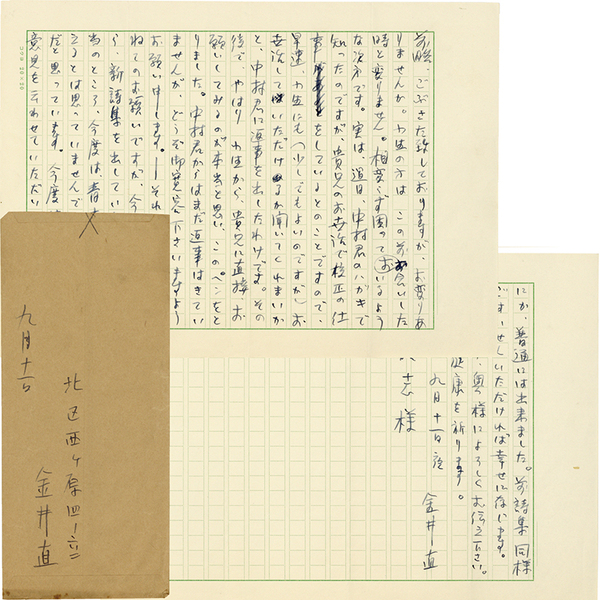 前略、ごぶさた致しておりますが、お変りあ
りませんか。小生の方は、この前お会いした
時と変りません。相変らず困っておいるよう
な次第です。実は、過日、中村君のハガキで
知ったのですが、貴兄のお世話で校正の仕
事をしているとのことですので、
早速、小生にも少しでもよいのですが、お
世話していただけるか聞いてくれまいか
と、中村君に返事を出したわけです。その
後で、やはり小生から、貴兄に直接、お
願いしてみるのが本当と思い、このペンをと
りました。中村君からはまだ返事はきてい
ませんが、どうぞ御寛容下さいますよう
お願い申します。―それ
ねてのお願いですが、今
ら、新詩集を出してい
当のところ、今度は、
えるとは思っていませんで
だと思っています。今度
意見を云わせていただい
にか、普通には出来ました。前詩集同様
いただければ幸せにぞんじます。
、奥様によろしくお伝え下さい。
健康を祈ります。
九月十一日夜
金井直
志様
北区西ヶ原四ノ六二
金井直
九月十一日